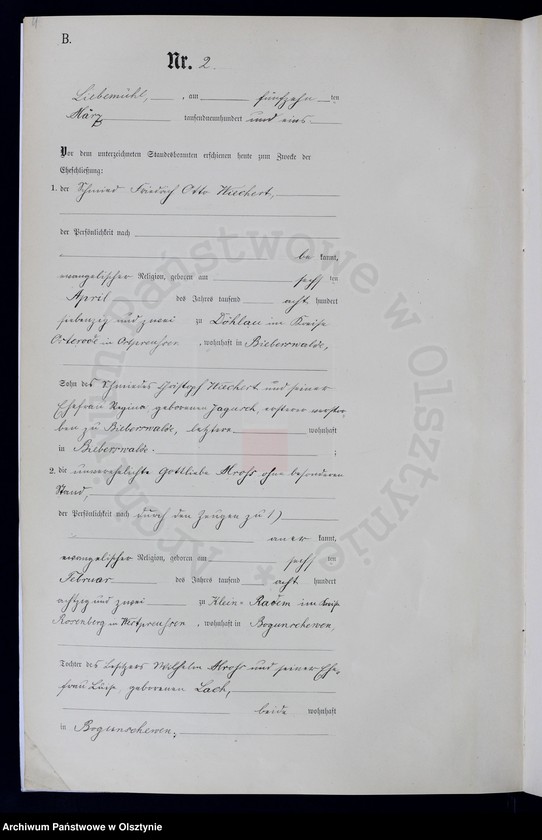 B.
Nr. 2.
Liebemühl, , am fünfzehn ten
März tausendneunhundert und eins.
Vor dem unterzeichneten Standesbeamten erschienen heute zum Zwecke der
Eheschließung:
1. der Schmied Friedrich Otto Wiechert,
der Persönlichkeit nach
be kannt,
evangelischer Religion, geboren am sechs ten
April des Jahres tausend acht hundert
siebenzig und zwei zu Döhlau im Kreise
Osterode in Ostpreußen , wohnhaft in Bieberswalde,
Sohn des Schmiedes Christoph Wiechert und seiner
Ehefrau Regina, geborenen Jagusch, ersterer verstor-
ben zu Bieberswalde, letztere wohnhaft
in Bieberswalde. ;
2. die unverehelichte Gottliebe Mrohs ohne besonderen
Stand,
der Persönlichkeit nach durch den Zeugen zu 1)
aner kannt,
evangelischer Religion, geboren am sechs ten
Februar des Jahres tausend acht hundert
achtzig und zwei zu Klein- Radem im Kreise
Rosenberg in Westpreußen , wohnhaft in Bogunschewen,
Tochter des Besitzers Wilhelm Mrohs und seiner Ehe-
frau Luise, geborenen Lach,
beide wohnhaft
in Bogunschewen.
Archiwum Państwowe w Olsztynie
Archiwum Państwowe w Olsztynie